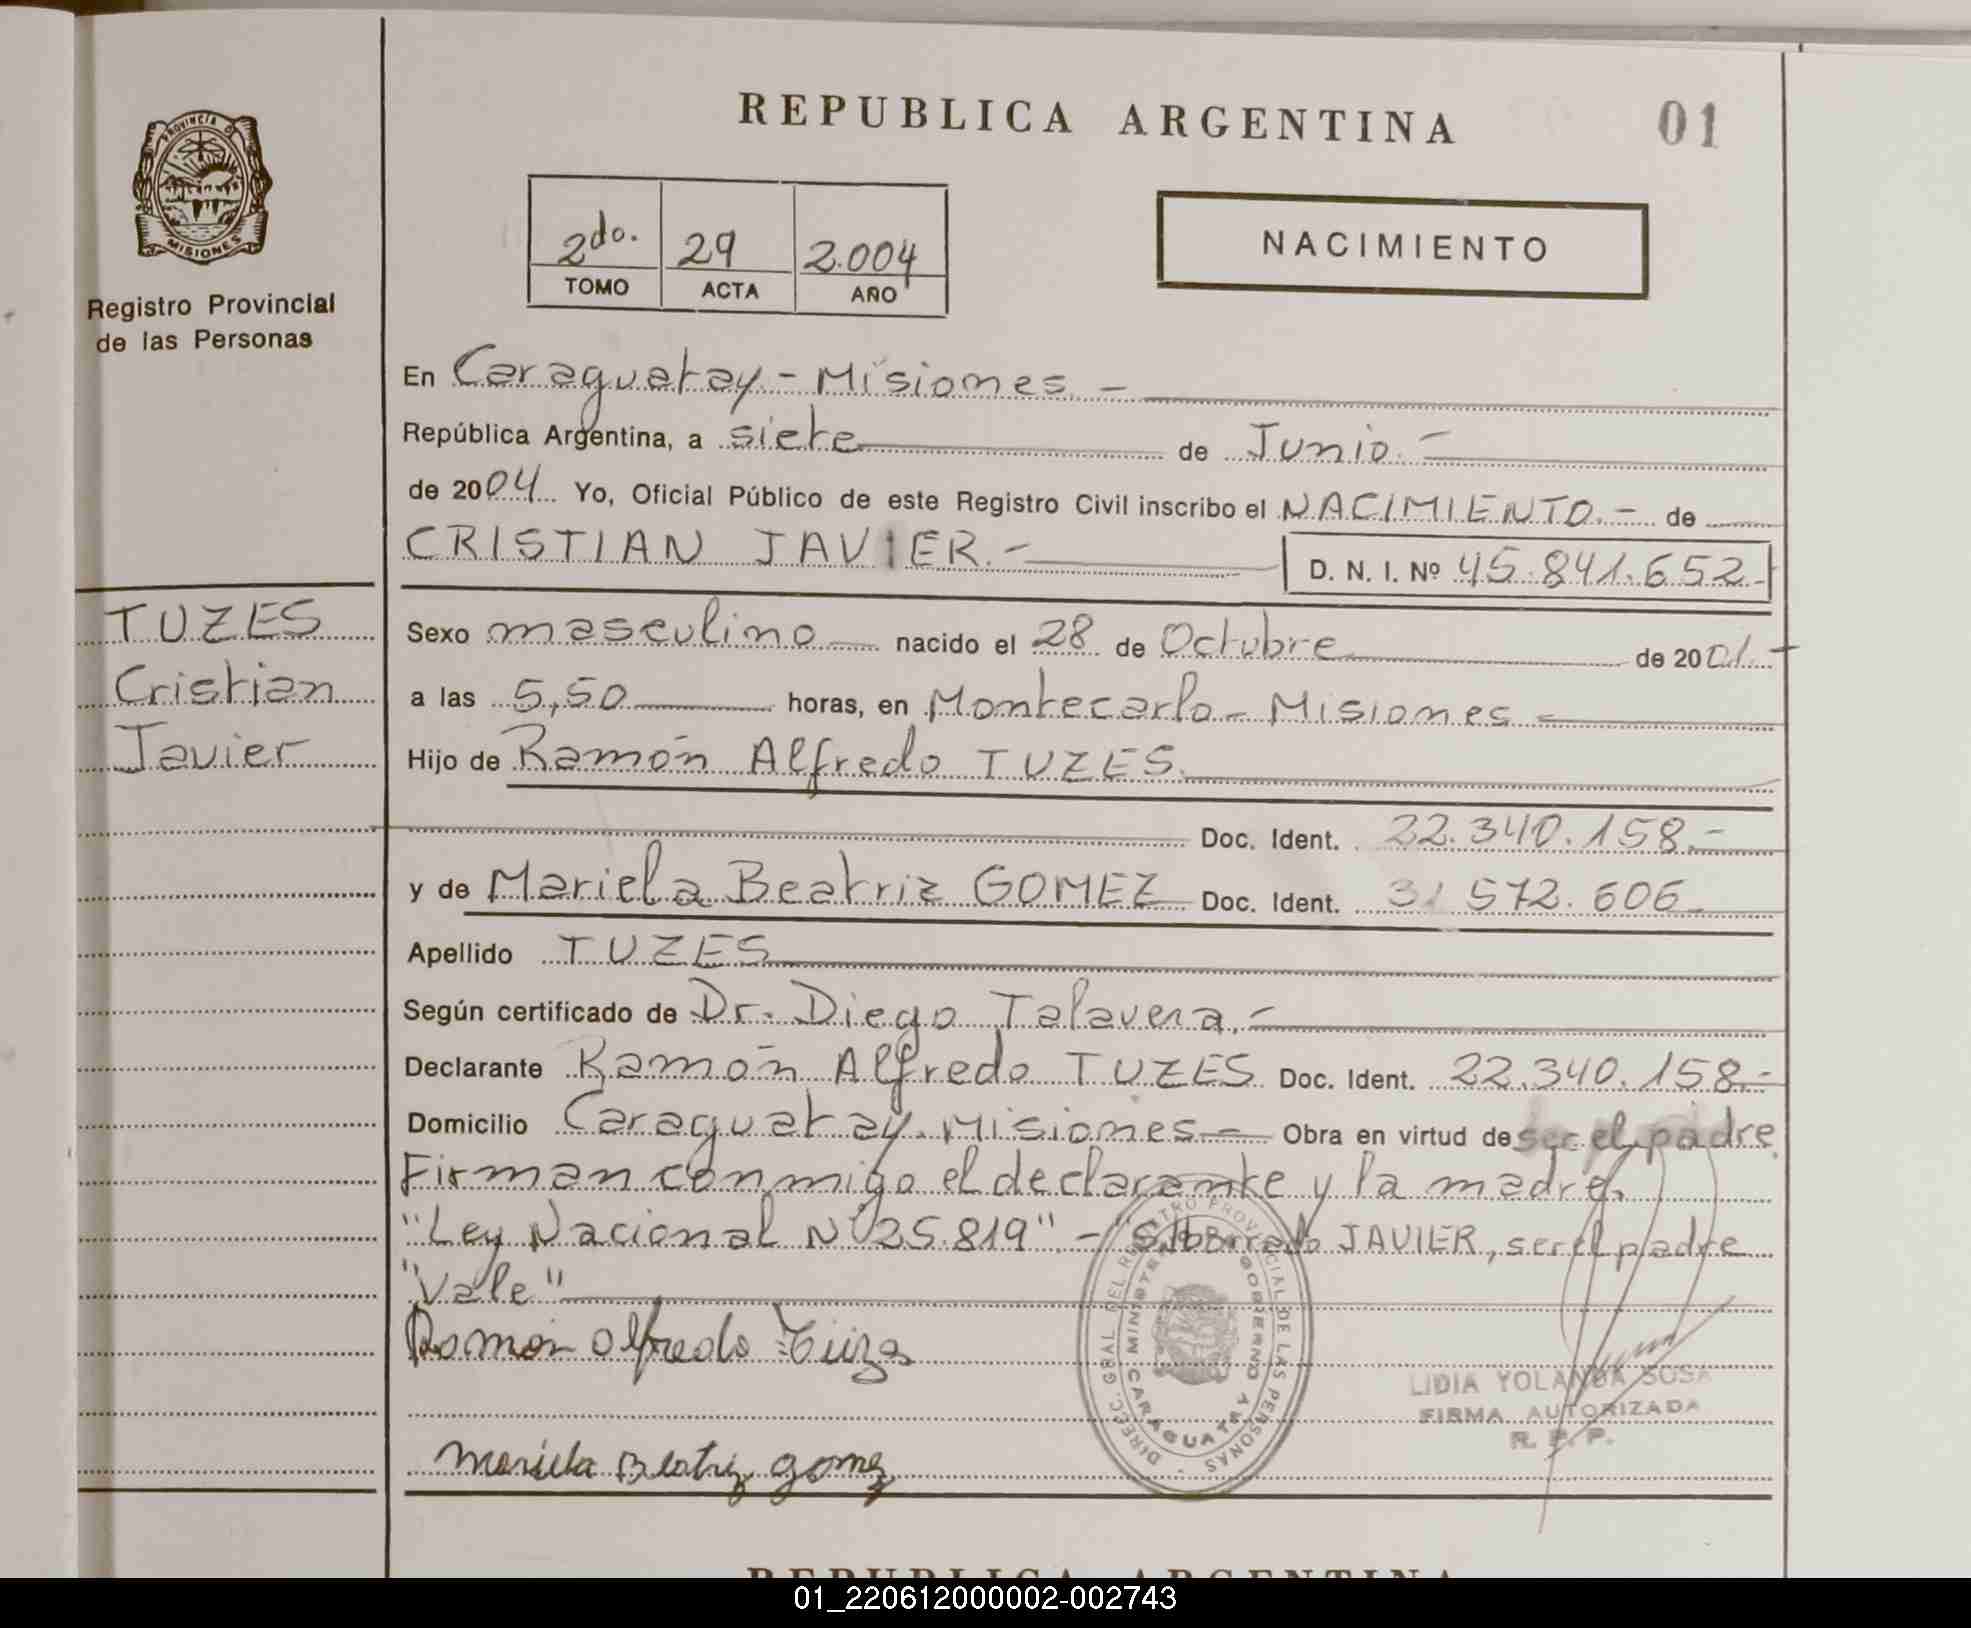 REPUBLICA ARGENTINA
01
PROVINCIA DE
MISIONES
Registro Provincial
de las Personas
2do. 29 2.004
TOMO ACTA AÑO
NACIMIENTO
En Caraguatay - Misiones -
República Argentina, a siete de Junio. -
de 2004 Yo, Oficial Público de este Registro Civil inscribo el NACIMIENTO. - de
CRISTIAN JAVIER. -
D. N. I. Nº 45.841.652-
TUZES
Cristian
Javier
Sexo masculino nacido el 28 de Octubre de 2001.-
a las 5,50 horas, en Montecarlo - Misiones -
Hijo de Ramón Alfredo TUZES.
Doc. Ident. 22.340.158.-
y de Mariela Beatriz GOMEZ Doc. Ident. 31 572.606-
Apellido TUZES
Según certificado de Dr. Diego Talavera.-
Declarante Ramón Alfredo TUZES Doc. Ident. 22.340.158.-
Domicilio Caraguatay. Misiones - Obra en virtud de ser el padre
Firman conmigo el declarante y la madre.
"Ley Nacional Nº 25.819" - "S/Borrado JAVIER, ser el padre
"Vale"
Ramón Alfredo
Mariela Beatriz gomez
DIREC. GRAL DEL REGISTRO PROVINCIAL DE LAS PERSONAS
MINISTERIO GOBIERNO
CARAGUATAY
LIDIA YOLANDA SOSA
FIRMA AUTORIZADA
R. P. P.
REPUBLICA ARGENTINA
01_220612000002-002743